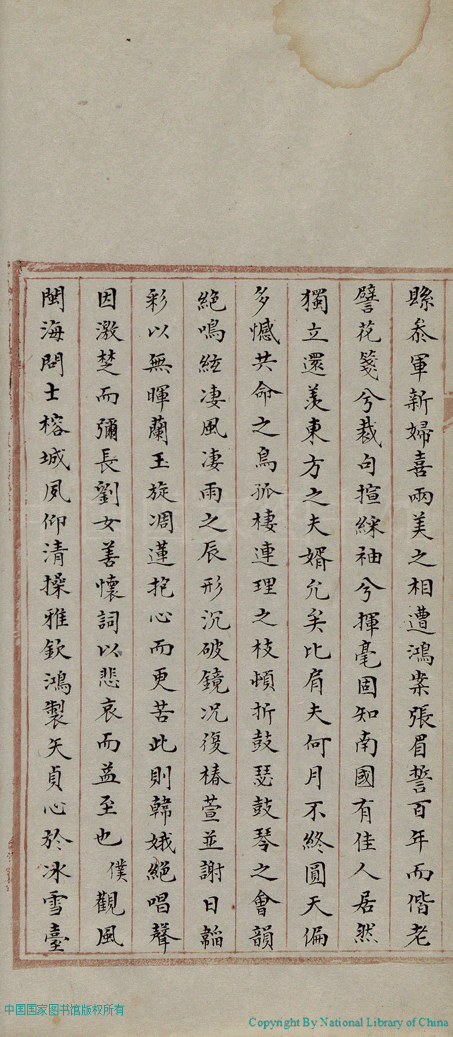 縣叅軍新婦喜兩美之相遭鴻案張眉誓百年而偕老
譬花箋兮裁句揎綵袖兮揮毫固知南國有佳人居然
獨立還羨東方之夫婿允矣比肩夫何月不終圓天偏
多憾共命之鳥孤棲連理之枝頓折鼓瑟鼓琴之會韻
絕鳴絃凄風凄雨之辰形沉破鏡况復椿萱並謝日韜
彩以無暉蘭玉旋凋蓮抱心而更苦此則韓娥絕唱聲
因激楚而彌長劉女善懷詞以悲哀而益至也 僕觀風
閩海問士榕城夙仰清操雅欽鴻製矢貞心於冰雪臺
中国国家图书馆版权所有
Copyright By National Library of China